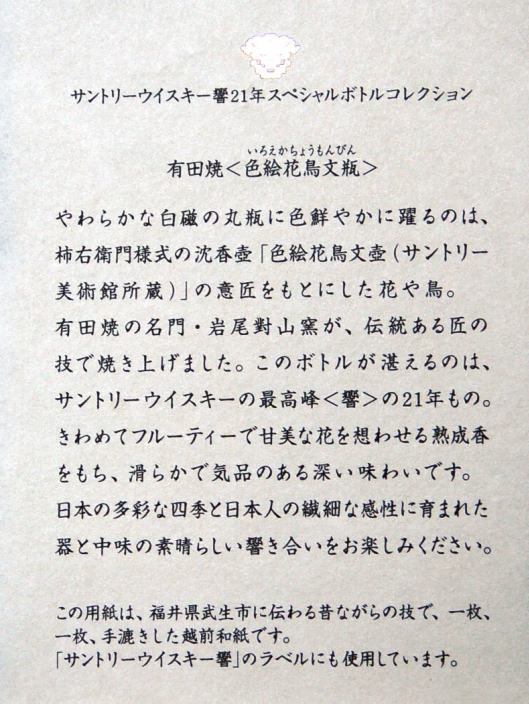 サントリーウイスキー響21年スペシャルボトルコレクション
いろえかちょうもんびん
有田焼＜色絵花鳥文瓶＞
やわらかな白磁の丸瓶に色鮮やかに躍るのは、
柿右衛門様式の沈香壺「色絵花鳥文壺（サントリー
美術館所蔵）」の意匠をもとにした花や鳥。
有田焼の名門・岩尾對山窯が、伝統ある匠の
技で焼き上げました。このボトルが湛えるのは、
サントリーウイスキーの最高峰＜響＞の21年もの。
きわめてフルーティーで甘美な花を想わせる熟成香
をもち、滑らかで気品のある深い味わいです。
日本の多彩な四季と日本人の繊細な感性に育まれた
器と中味の素晴らしい響き合いをお楽しみください。
この用紙は、福井県武生市に伝わる昔ながらの技で、一枚、
一枚、手漉きした越前和紙です。
「サントリーウイスキー響」のラベルにも使用しています。